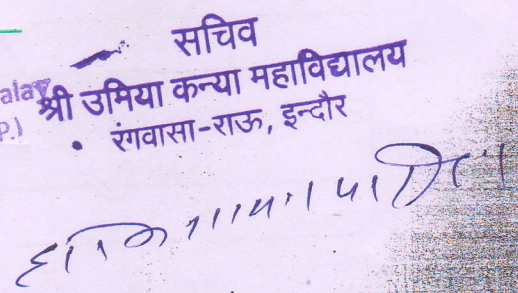 सचिव
श्री उमिया कन्या महाविद्यालय
रंगवासा-राऊ, इन्दौर